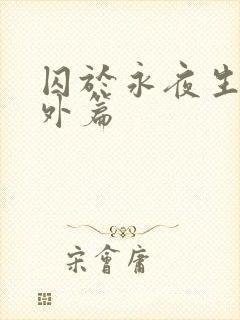 囚於永夜生
外篇
宋會庸